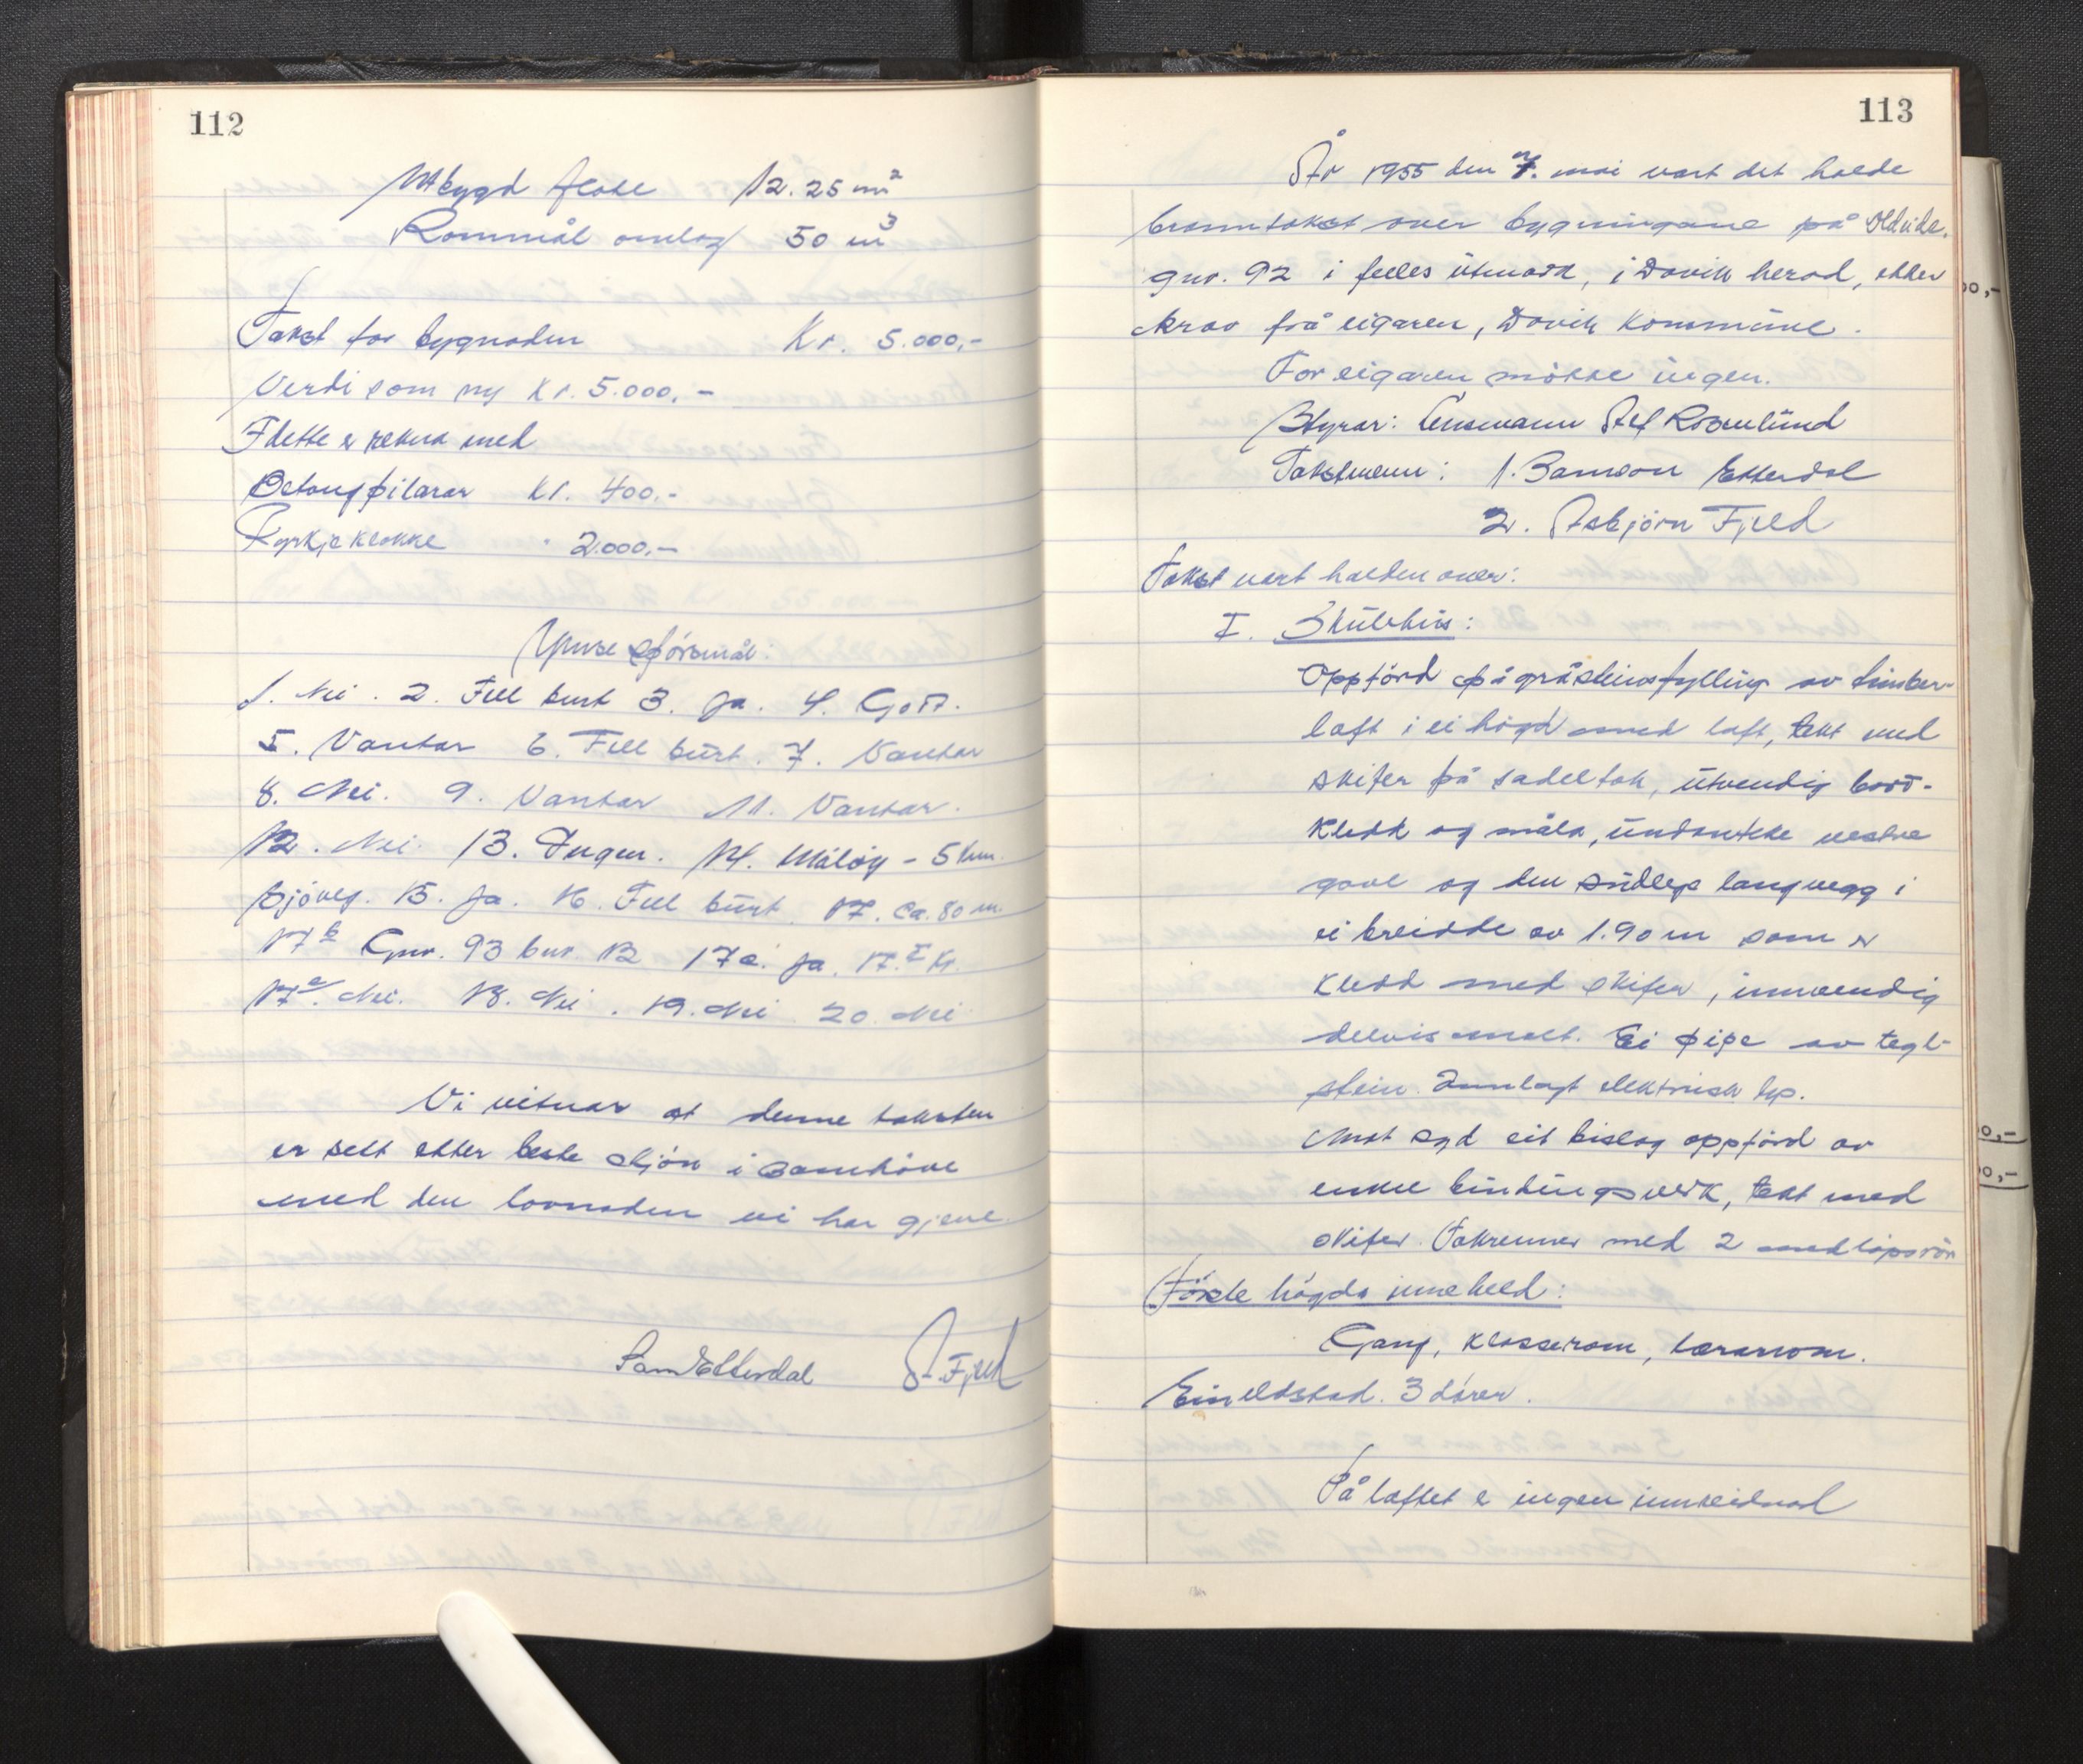 112
Utbygd flate 12.25 m²
Rommål omlag 50 m³
Takst for bygnaden Kr. 5.000,-
Verdi som ny Kr. 5.000,-
I dette er rekna med
Betongpilarar kr. 400.-
Kyrkjeklokke " 2.000,-
Ymse spörsmål:
1. Nei. 2. Fell burt 3. Ja. 4. Godt.
5. Vantar 6. Fell burt. 7. Vantar
8. Nei. 9. Vantar 11. Vantar.
12. Nei. 13. Ingen. 14. Måløy - 5 km.
sjöveg. 15. Ja. 16. Fell burt. 17. ca. 80 m.
17 b Gnr. 93 bnr. 12 17c. Ja. 17.
17 e. Nei. 18. Nei. 19. Nei 20. Nei
Vi vitnar at denne taksten
er sett etter beste skjön i samhöve
med den lovnaden vi har gjeve.
Sam Etterdal A. Fjeld
113
År 1955 den 7. mai vart det halde
branntakst over bygningane på Oldeide,
gnr. 92 i felles utmark, i Davik herad, etter
krav frå eigaren, Davik kommune.
For eigaren mötte ingen.
Styrar: Lensmann Alf Rosenlund
Takstmenn: 1. Samson Etterdal
2. Asbjörn Fjeld
Takst vart halden over:
I. Skulehus:
Oppförd på gråsteinsfylling av timber-
laft i ei högd med loft, tekt med
skifer på sadeltak, utvendig bord-
kledd og måla, undanteke vestre
gavl og den sudlege langvegg i
ei breidde av 1.90 m som er
kledd med skifer, innvendig
delvis malt. Ei pipe av tegl-
stein. Innlagt elektrisk lys.
Mot syd eit bislag oppförd av
enkel bindingsverk, tekt med
skifer. Takrenner med 2 nedlöpsrör
Förste högda inneheld:
Gang, klasserom, lærarrom.
Ein eldstad. 3 dörer.
På loftet er ingen innreidnad